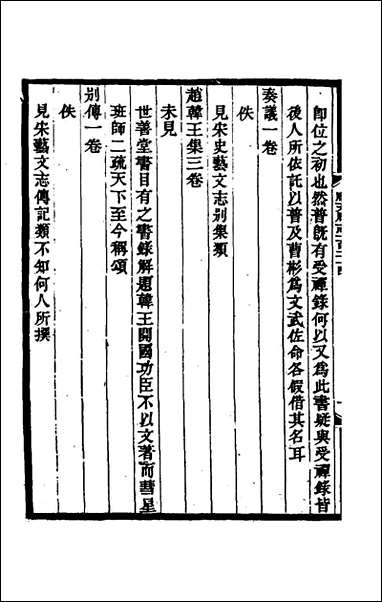 卽位之初也然普旣有受禪錄何以又爲此書疑與受禪錄皆
後人所依託以普及曹彬爲文武佐命各假借其名耳
奏議一卷
佚
見宋史藝文志別集類
趙韓王集三卷
未見
世善堂書目有之書錄解題韓王開國功臣不以文著而彗星
班師二疏天下至今稱頌
別傳一卷
佚
見宋藝文志傳記類不知何人所撰